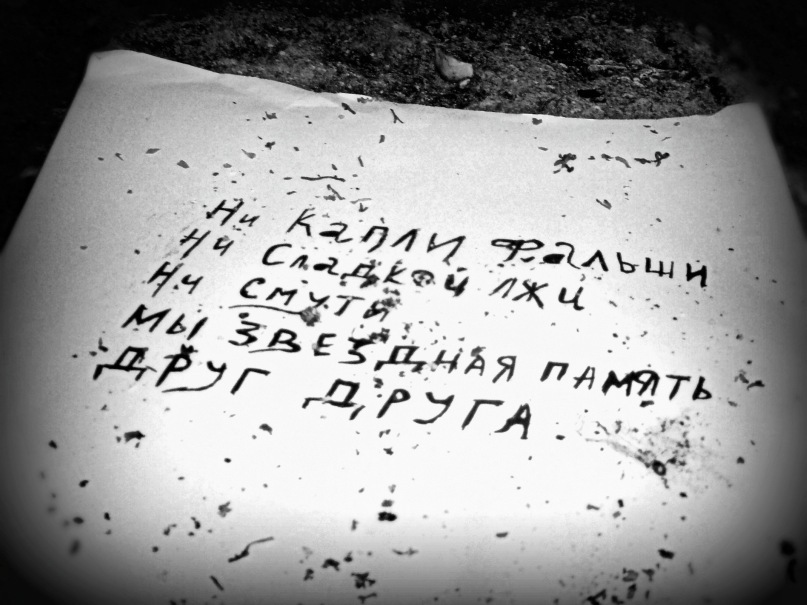 Ни капли фальши
Ни Сладкой лжи
Ни смути
МЫ ЗВЕЗДНАЯ ПАМЯТЬ
ДРУГ ДРУГА.